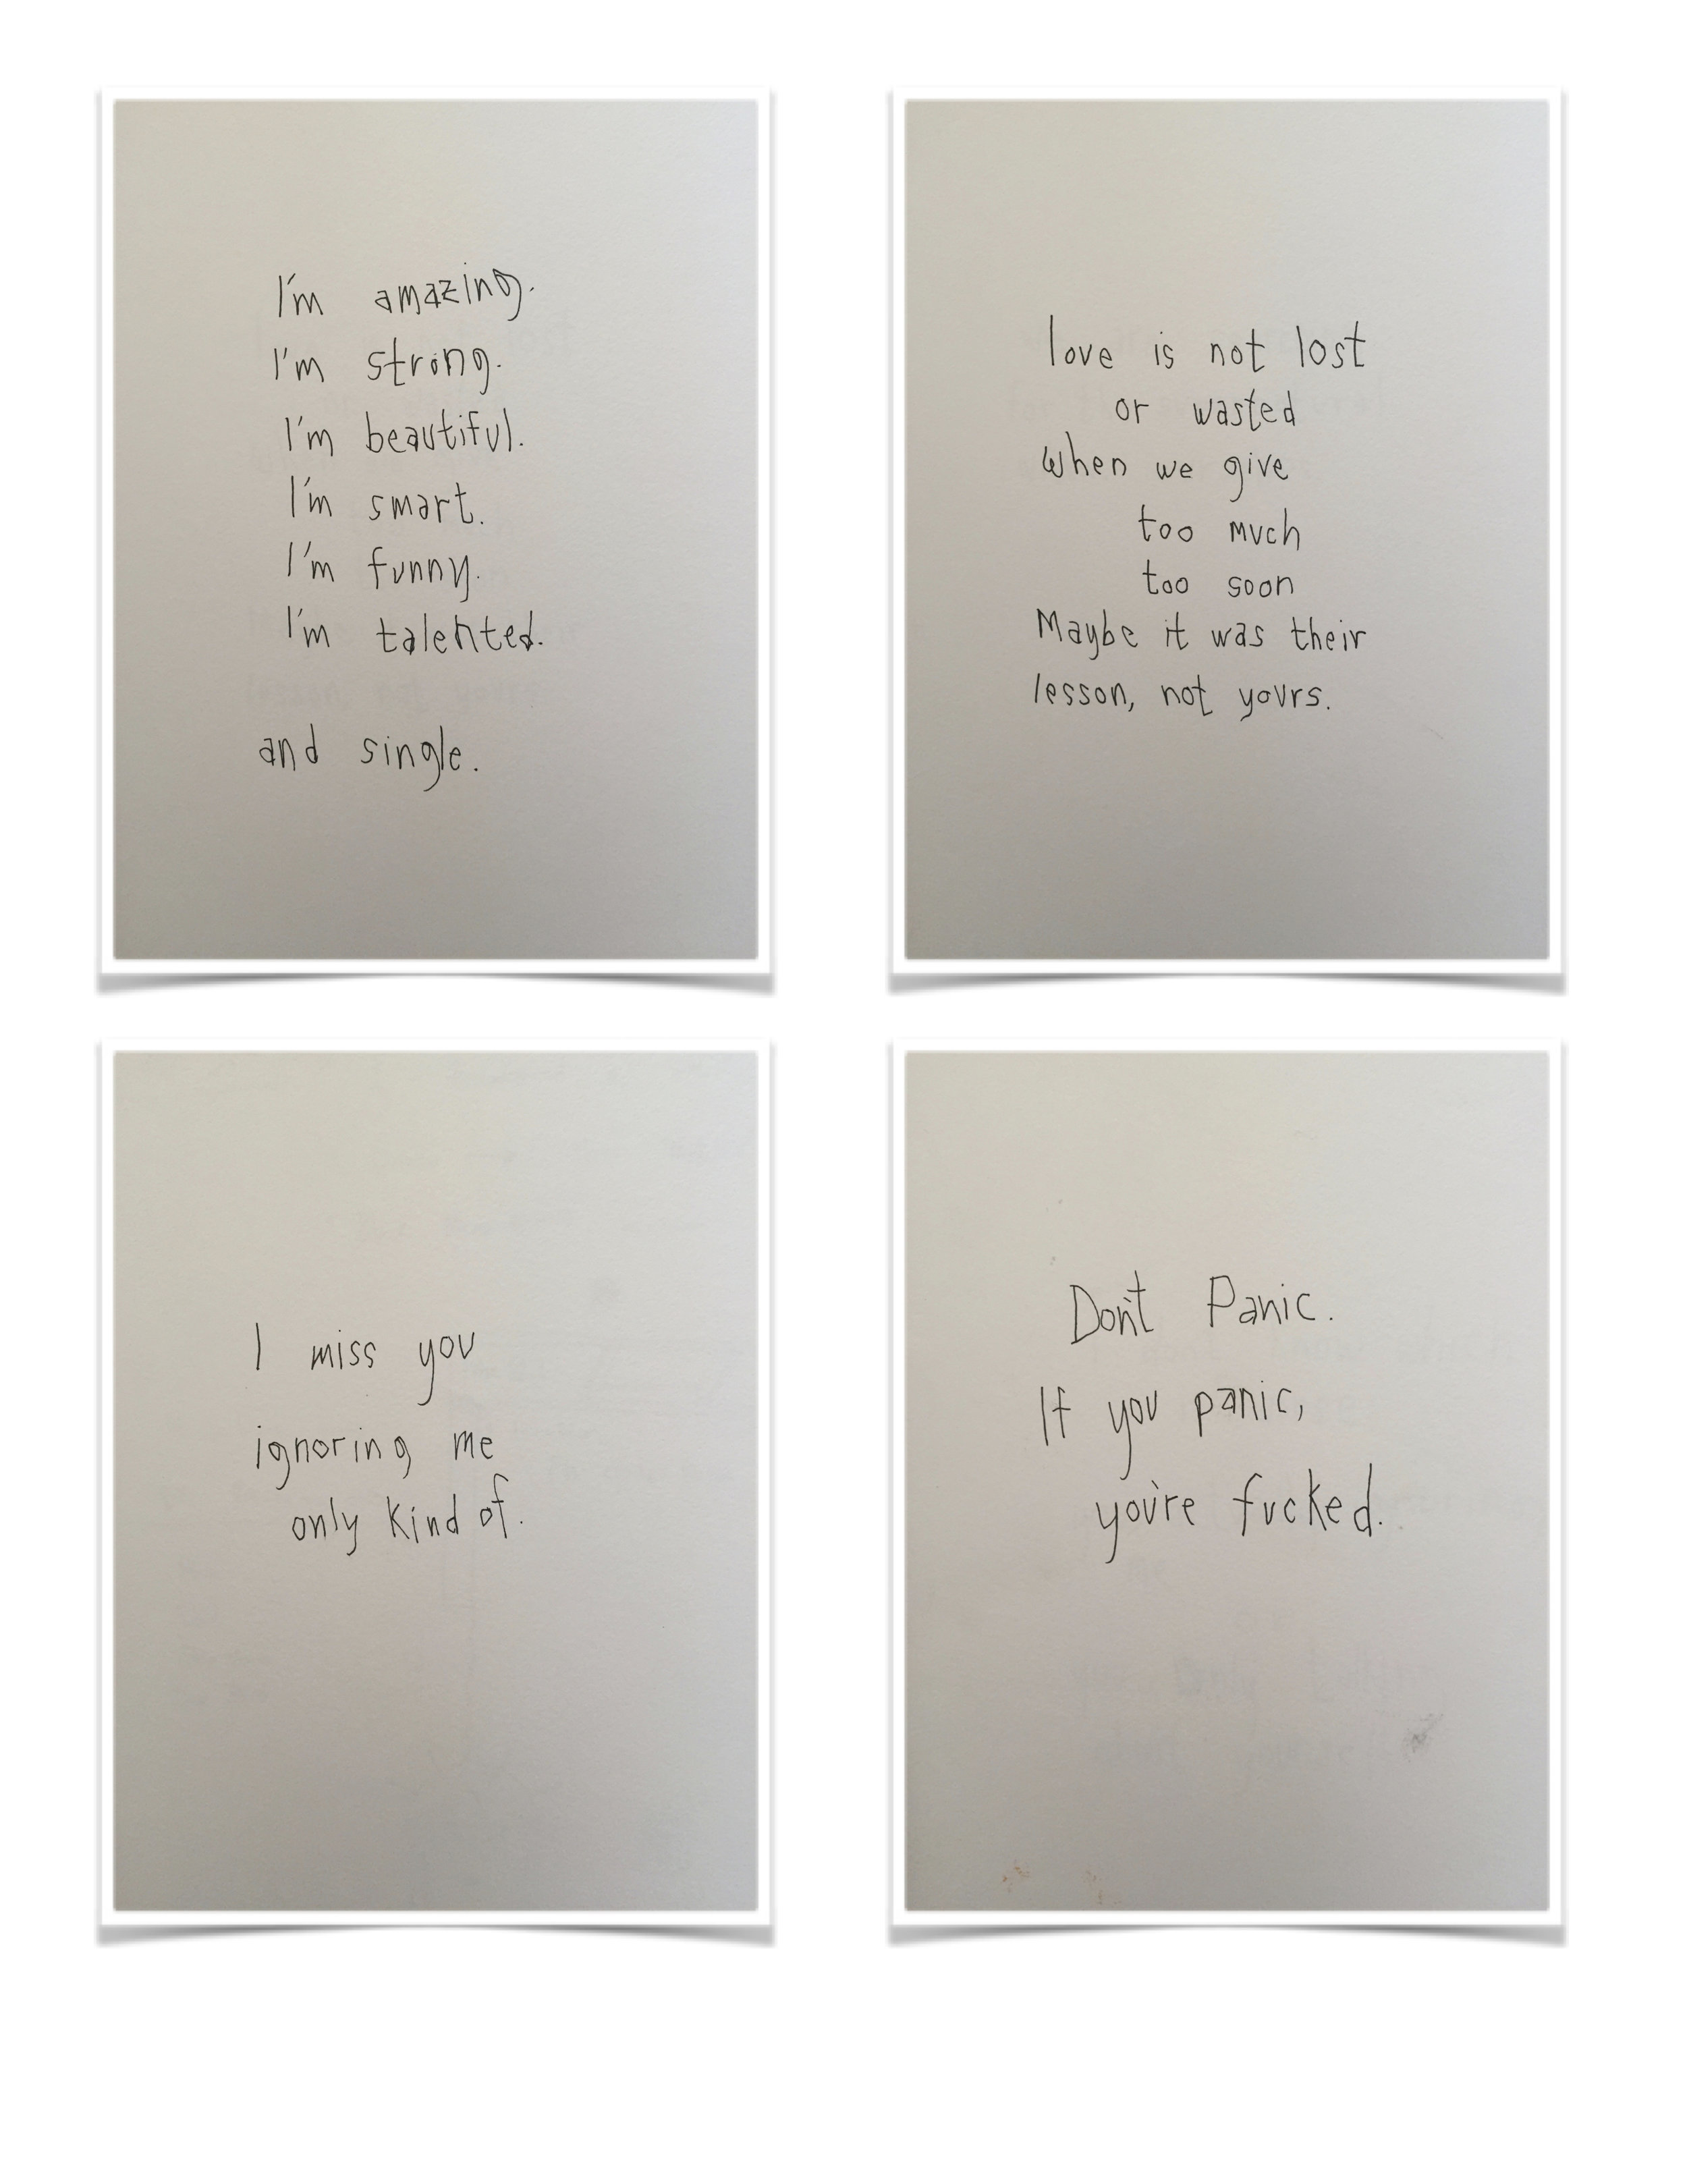 I'm amazing.
I'm strong.
I'm beautiful.
I'm smart.
I'm funny.
I'm talented.
and single.
love is not lost
or wasted
when we give
too much
too soon
Maybe it was their
lesson, not yours.
I miss you
ignoring me
only kind of.
Don't Panic.
If you panic,
you're fucked.